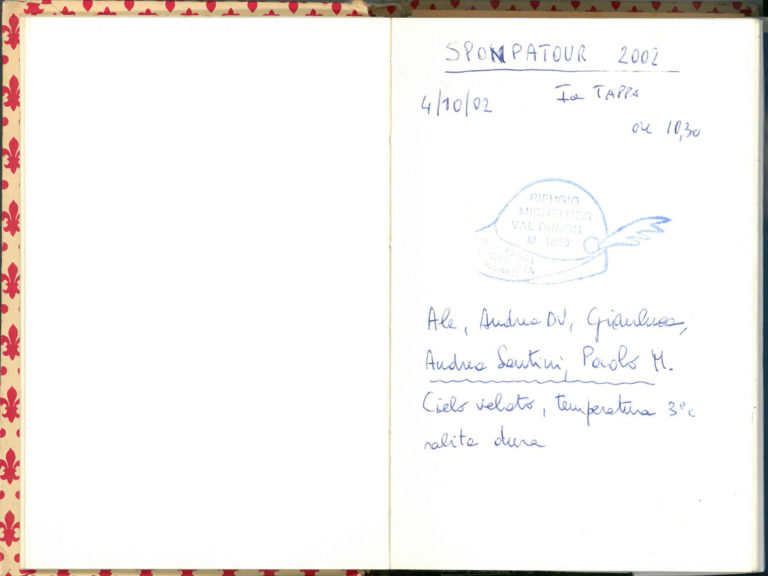 SPONPATOUR 2002
4/10/02 Ia TAPPA
ore 10,30
RIFUGIO
MICHELUZZI
VAL DURON
M. 1860
Ale, Andrea DV, Gianluca,
Andrea Santini, Paolo M.
Cielo velato, temperatura 3°c
salita dura